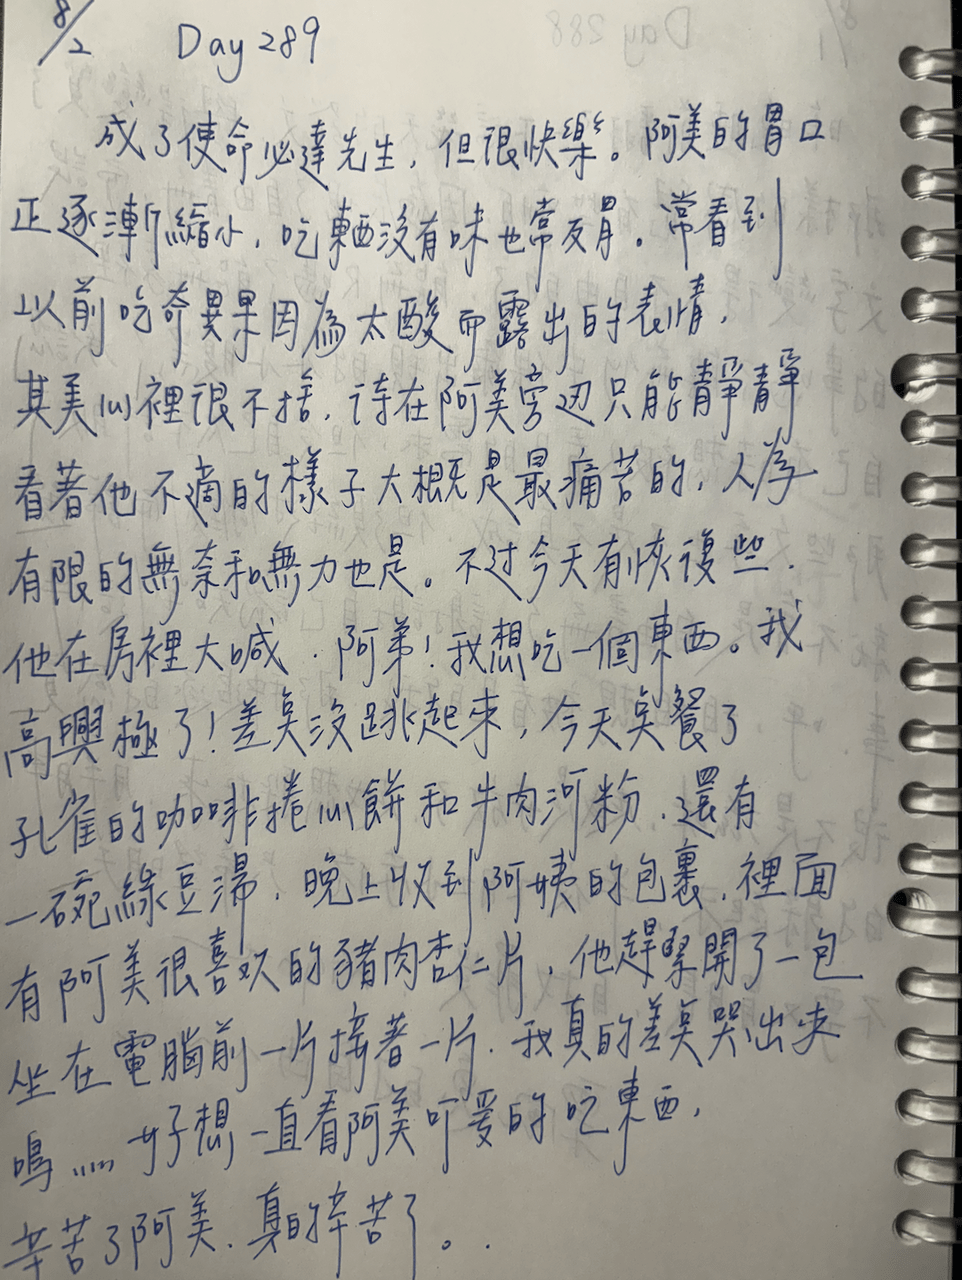 8/2 Day 289
成了使命必達先生，但很快樂。阿美的胃口
正逐漸縮小，吃東西沒有味也常反胃。常看到
以前吃奇異果因為太酸而露出的表情，
其美心裡很不捨，待在阿美旁边只能靜靜
看著他不適的樣子大概是最痛苦的，人為
有限的無奈和無力也是。不过今天有恢復些，
他在房裡大喊．阿弟！我想吃一個東西。我
高興極了！差點沒跳起來，今天吳餐了
孔雀的咖啡捲心餅和牛肉河粉．還有
一碗綠豆湯．晚上收到阿姨的包裹．裡面
有阿美很喜欢的豬肉杏仁片，他趕緊開了一包
坐在電腦前一片接著一片．我真的差點哭出來
嗚……好想一直看阿美可爱的吃東西，
辛苦了阿美．真的辛苦了。.